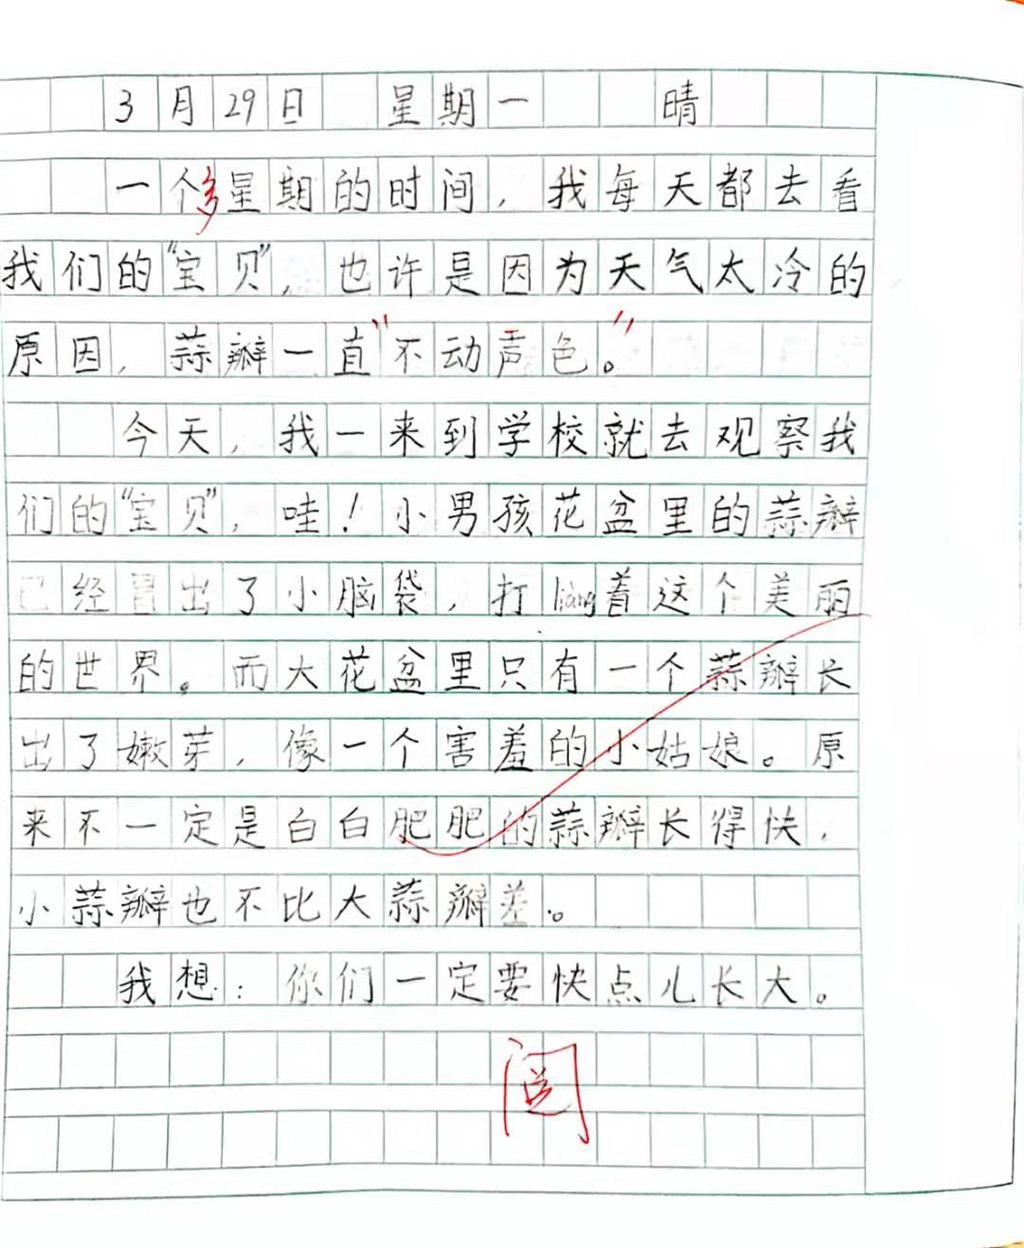 3月29日 星期一 晴
一个多星期的时间，我每天都去看
我们的“宝贝”，也许是因为天气太冷的
原因，蒜瓣一直“不动声色。”
今天，我一来到学校就去观察我
们的“宝贝”，哇！小男孩花盆里的蒜瓣
已经冒出了小脑袋，打liàng着这个美丽
的世界。而大花盆里只有一个蒜瓣长
出了嫩芽，像一个害羞的小姑娘。原
来不一定是白白肥肥的蒜瓣长得快，
小蒜瓣也不比大蒜瓣差。
我想：你们一定要快点儿长大。
阅